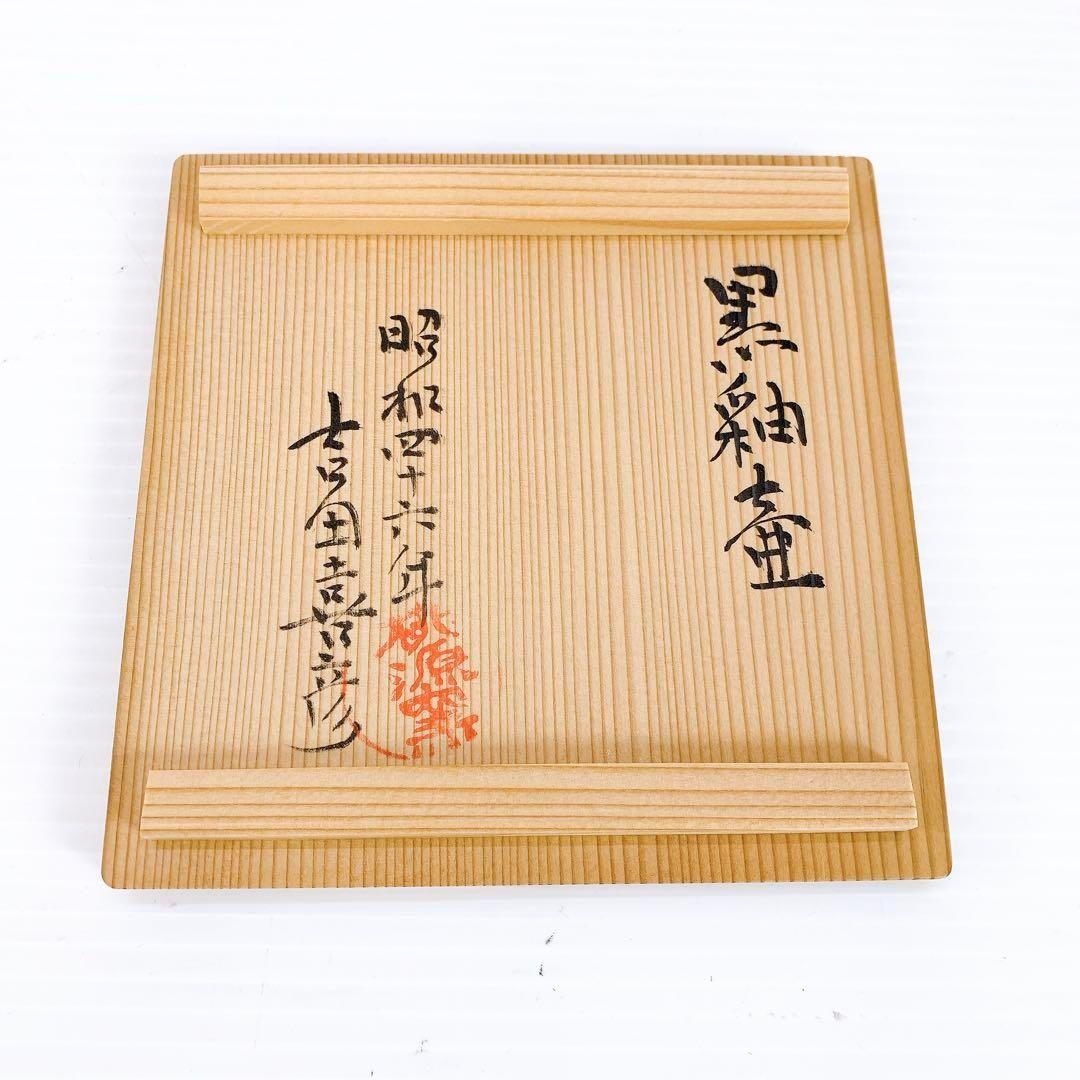 黒釉壺
昭和四十六年
吉田喜彦